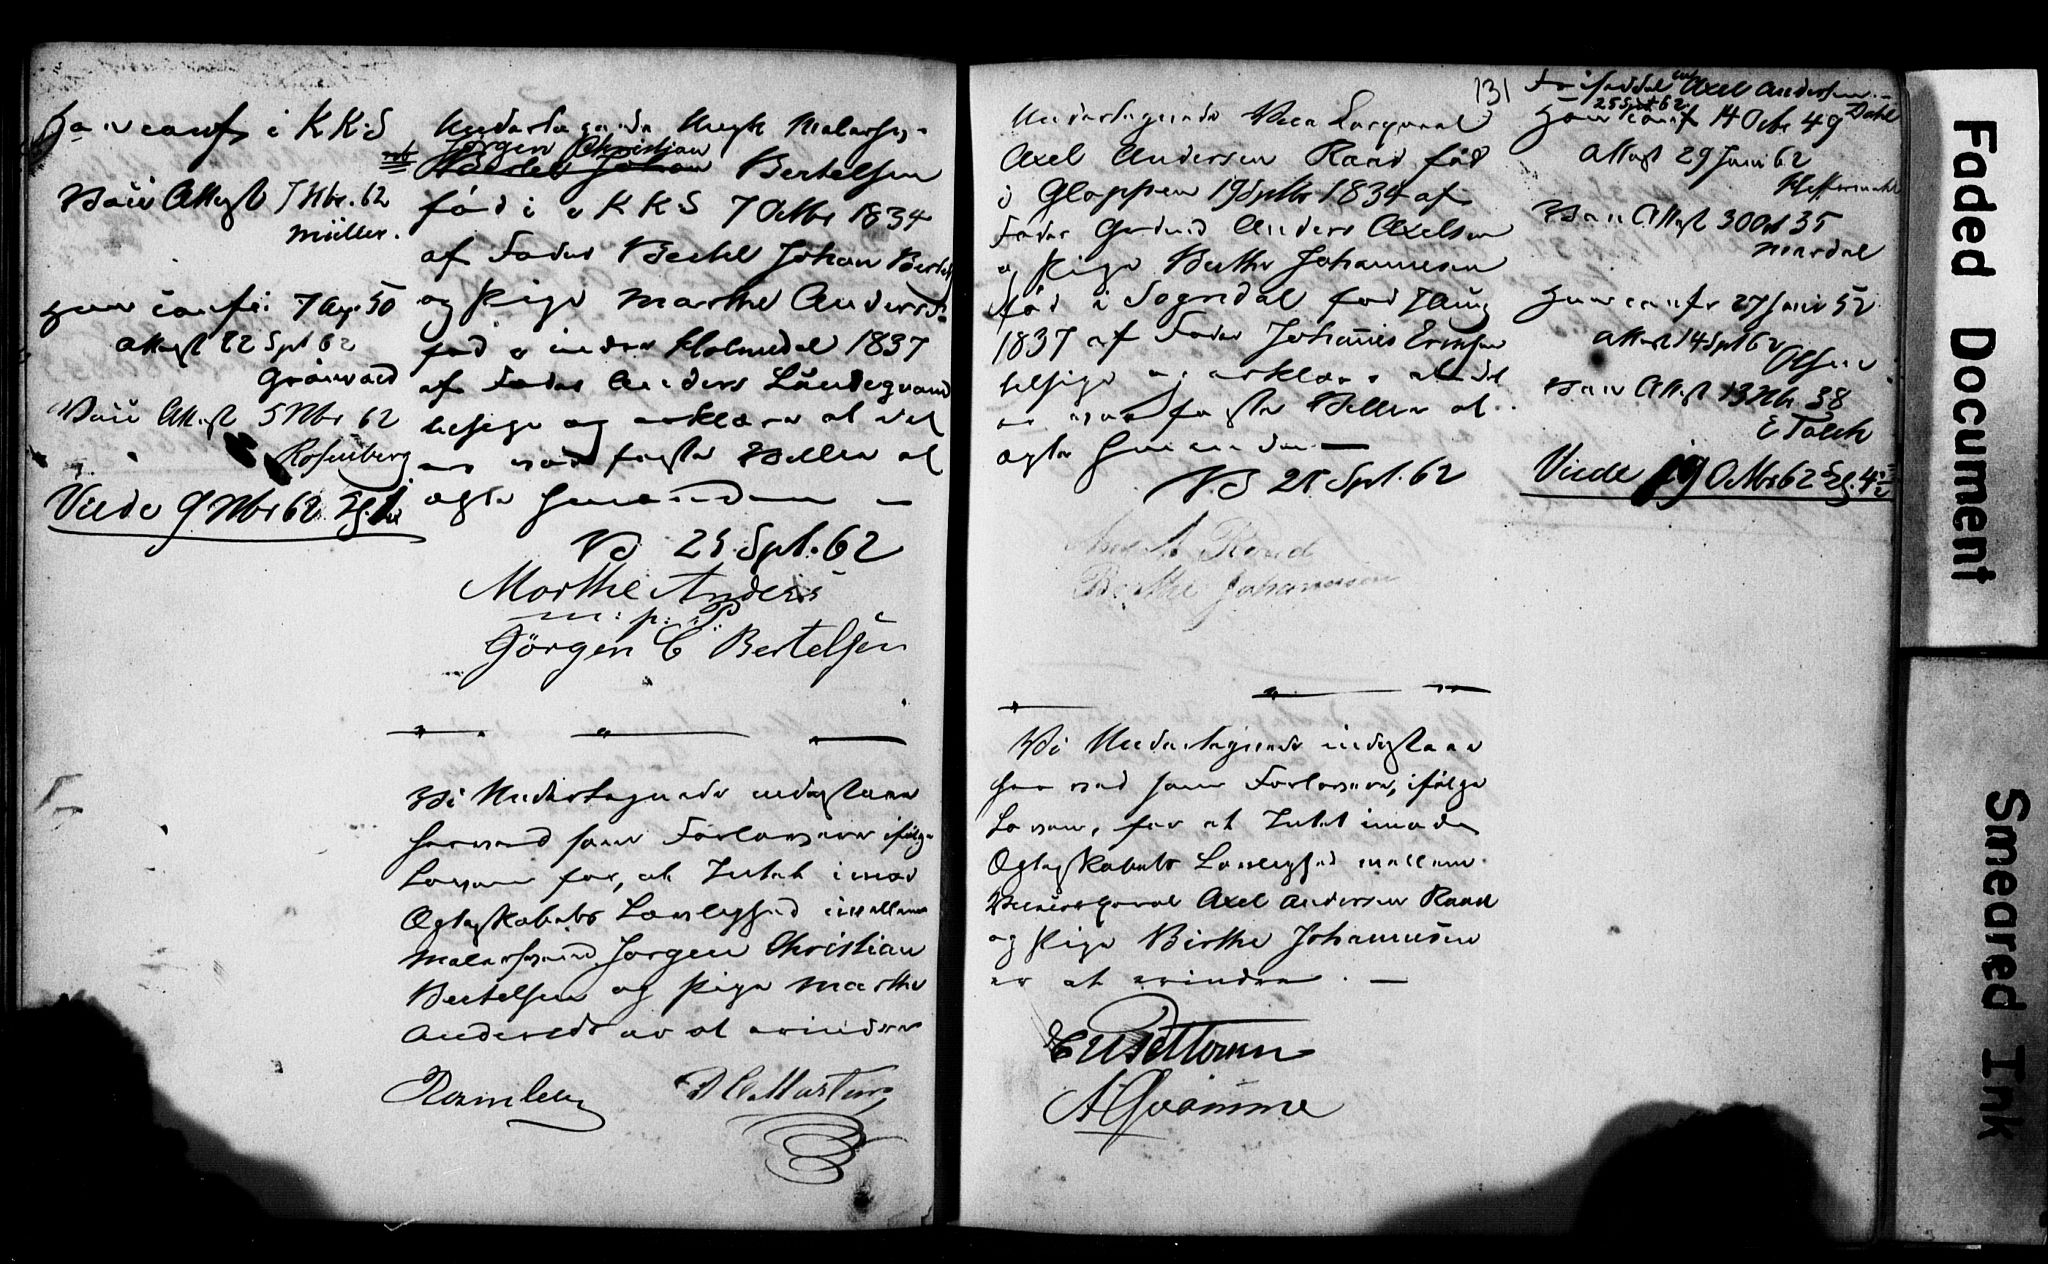 Han conf i K K S
Vacc Attest 7 Nbr. 62
Müller.
Hun conf: 7 Ap. 50
Attest 22 Spt 62
Grönvold
Vacc Attest 5 Nbr 62
Rosenberg
Viede 9 Nbr 62
Undertegnede Ungk Malersv.
Jörgen Christian
Bertel Johan Bertelsen
föd i K K S 7 Octbr 1834
af Fader Bertel Johan Bertels
og Pige Marthe Andersd:
föd i indre Holmedal 1837
af Fader Anders
besige og erklære at det
er vor faste Villie at
ægte hverandre —
VS 25 Spt. 62
Marthe Anders
m: p: P:
Jörgen C Bertelsen
Vi Undertegnede indestaae
herved som Forlovere ifölge
Loven for, at Intet imod
Ægteskabets Lovlighed imellem
Malersvend Jörgen Christian
Bertelsen og Pige Marthe
Andersdr er at erindre
131
Undertegnede Vice Corporal
Axel Andersen Raad föd
i Gloppen 19 Sptbr 1834 af
Fader Anders Axelsen
og Pige Berthe Johannesen
föd i Sogndal föd 7 Aug
1837 af Fader Johannes
besige og erklære at det
er vor faste Villie at
ægte hverandre —
VS 25 Spt. 62
Raad
Berthe Johannesen
Vi Undertegnede indestaae
herved som Forlovere, ifölge
Loven, for at Intet imod
Ægteskabets Lovlighed mellem
Vicecorporal Axel Andersen Raad
og Pige Birthe Johannesen
er at erindre. —
Axel Andersen
25 Spt 62
Dahl
Han conf 14 Octr 49
Attest 29 Juni 62
Vacc Attest 30 Oct 35
Mardal
Hun conf 27 Juni 52
Attest 14 Spt 62
Olsen
Vacc Attest 13 Nbr 38
Viede 19 Octbr 62
Faded Document
Smeared Ink